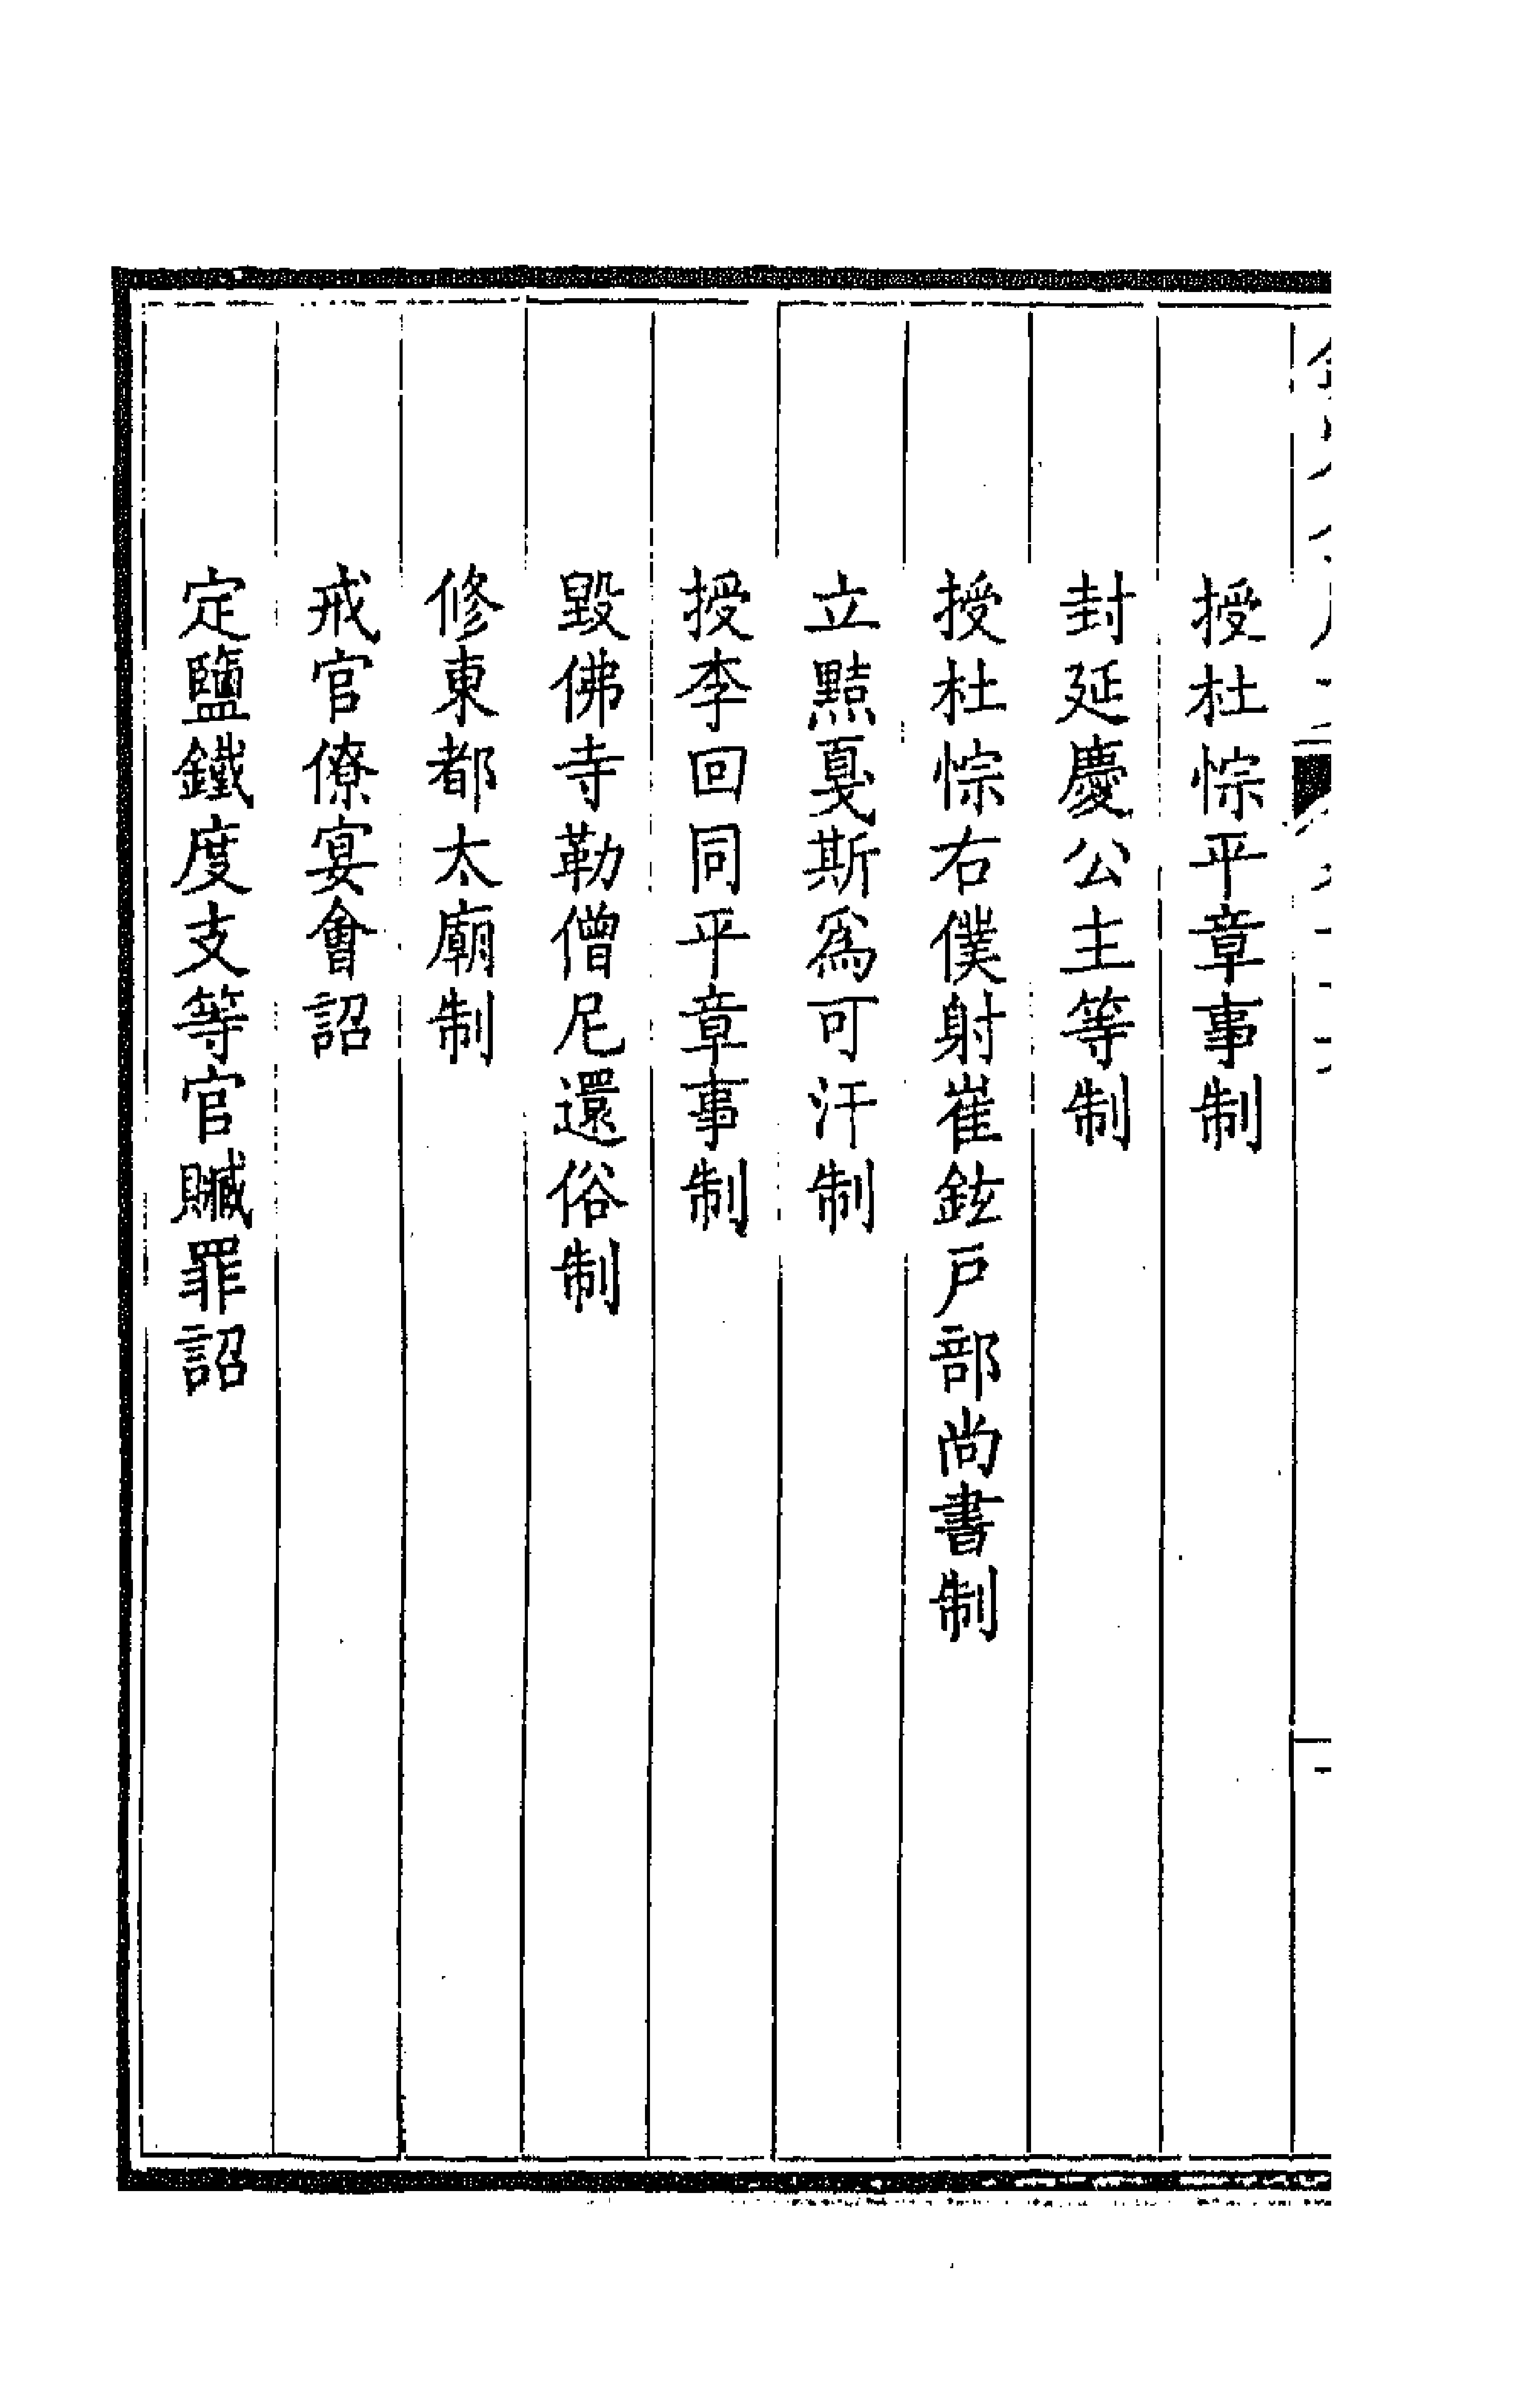 授杜悰平章事制
封延慶公主等制
授杜悰右僕射崔鉉戸部尚書制
立黠戛斯爲可汗制
授李回同平章事制
毀佛寺勒僧尼還俗制
修東都太廟制
戒官僚宴會詔
定鹽鐵度支等官贓罪詔